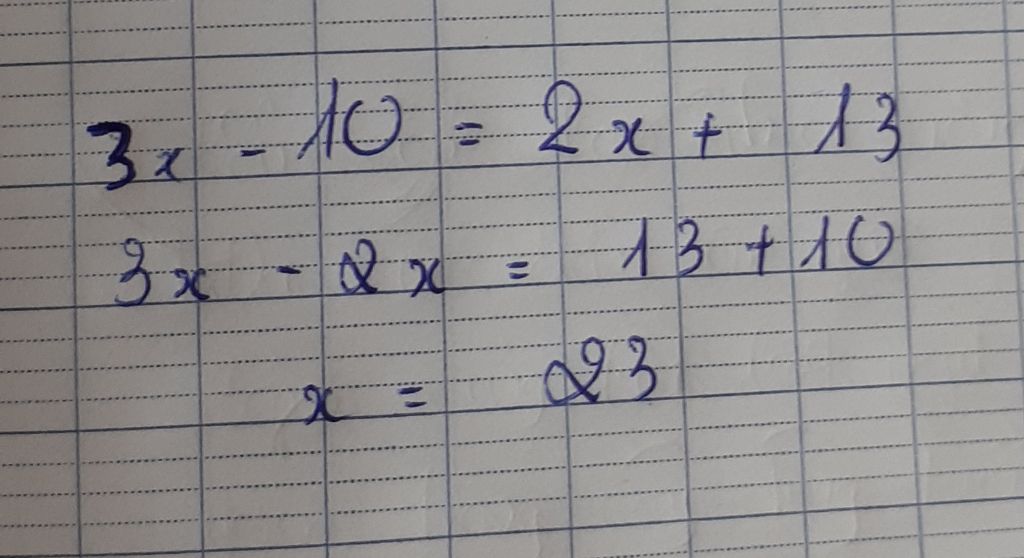 3x - 10 = 2x + 13
3x - 2x = 13 + 10
x = 23